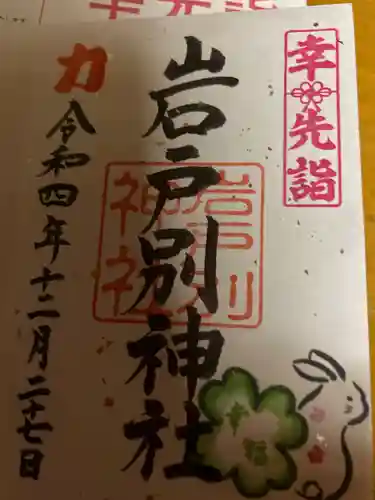 幸先詣
岩戸別神社
岩戸別
神社
力
令和四年十二月二十七日
幸福